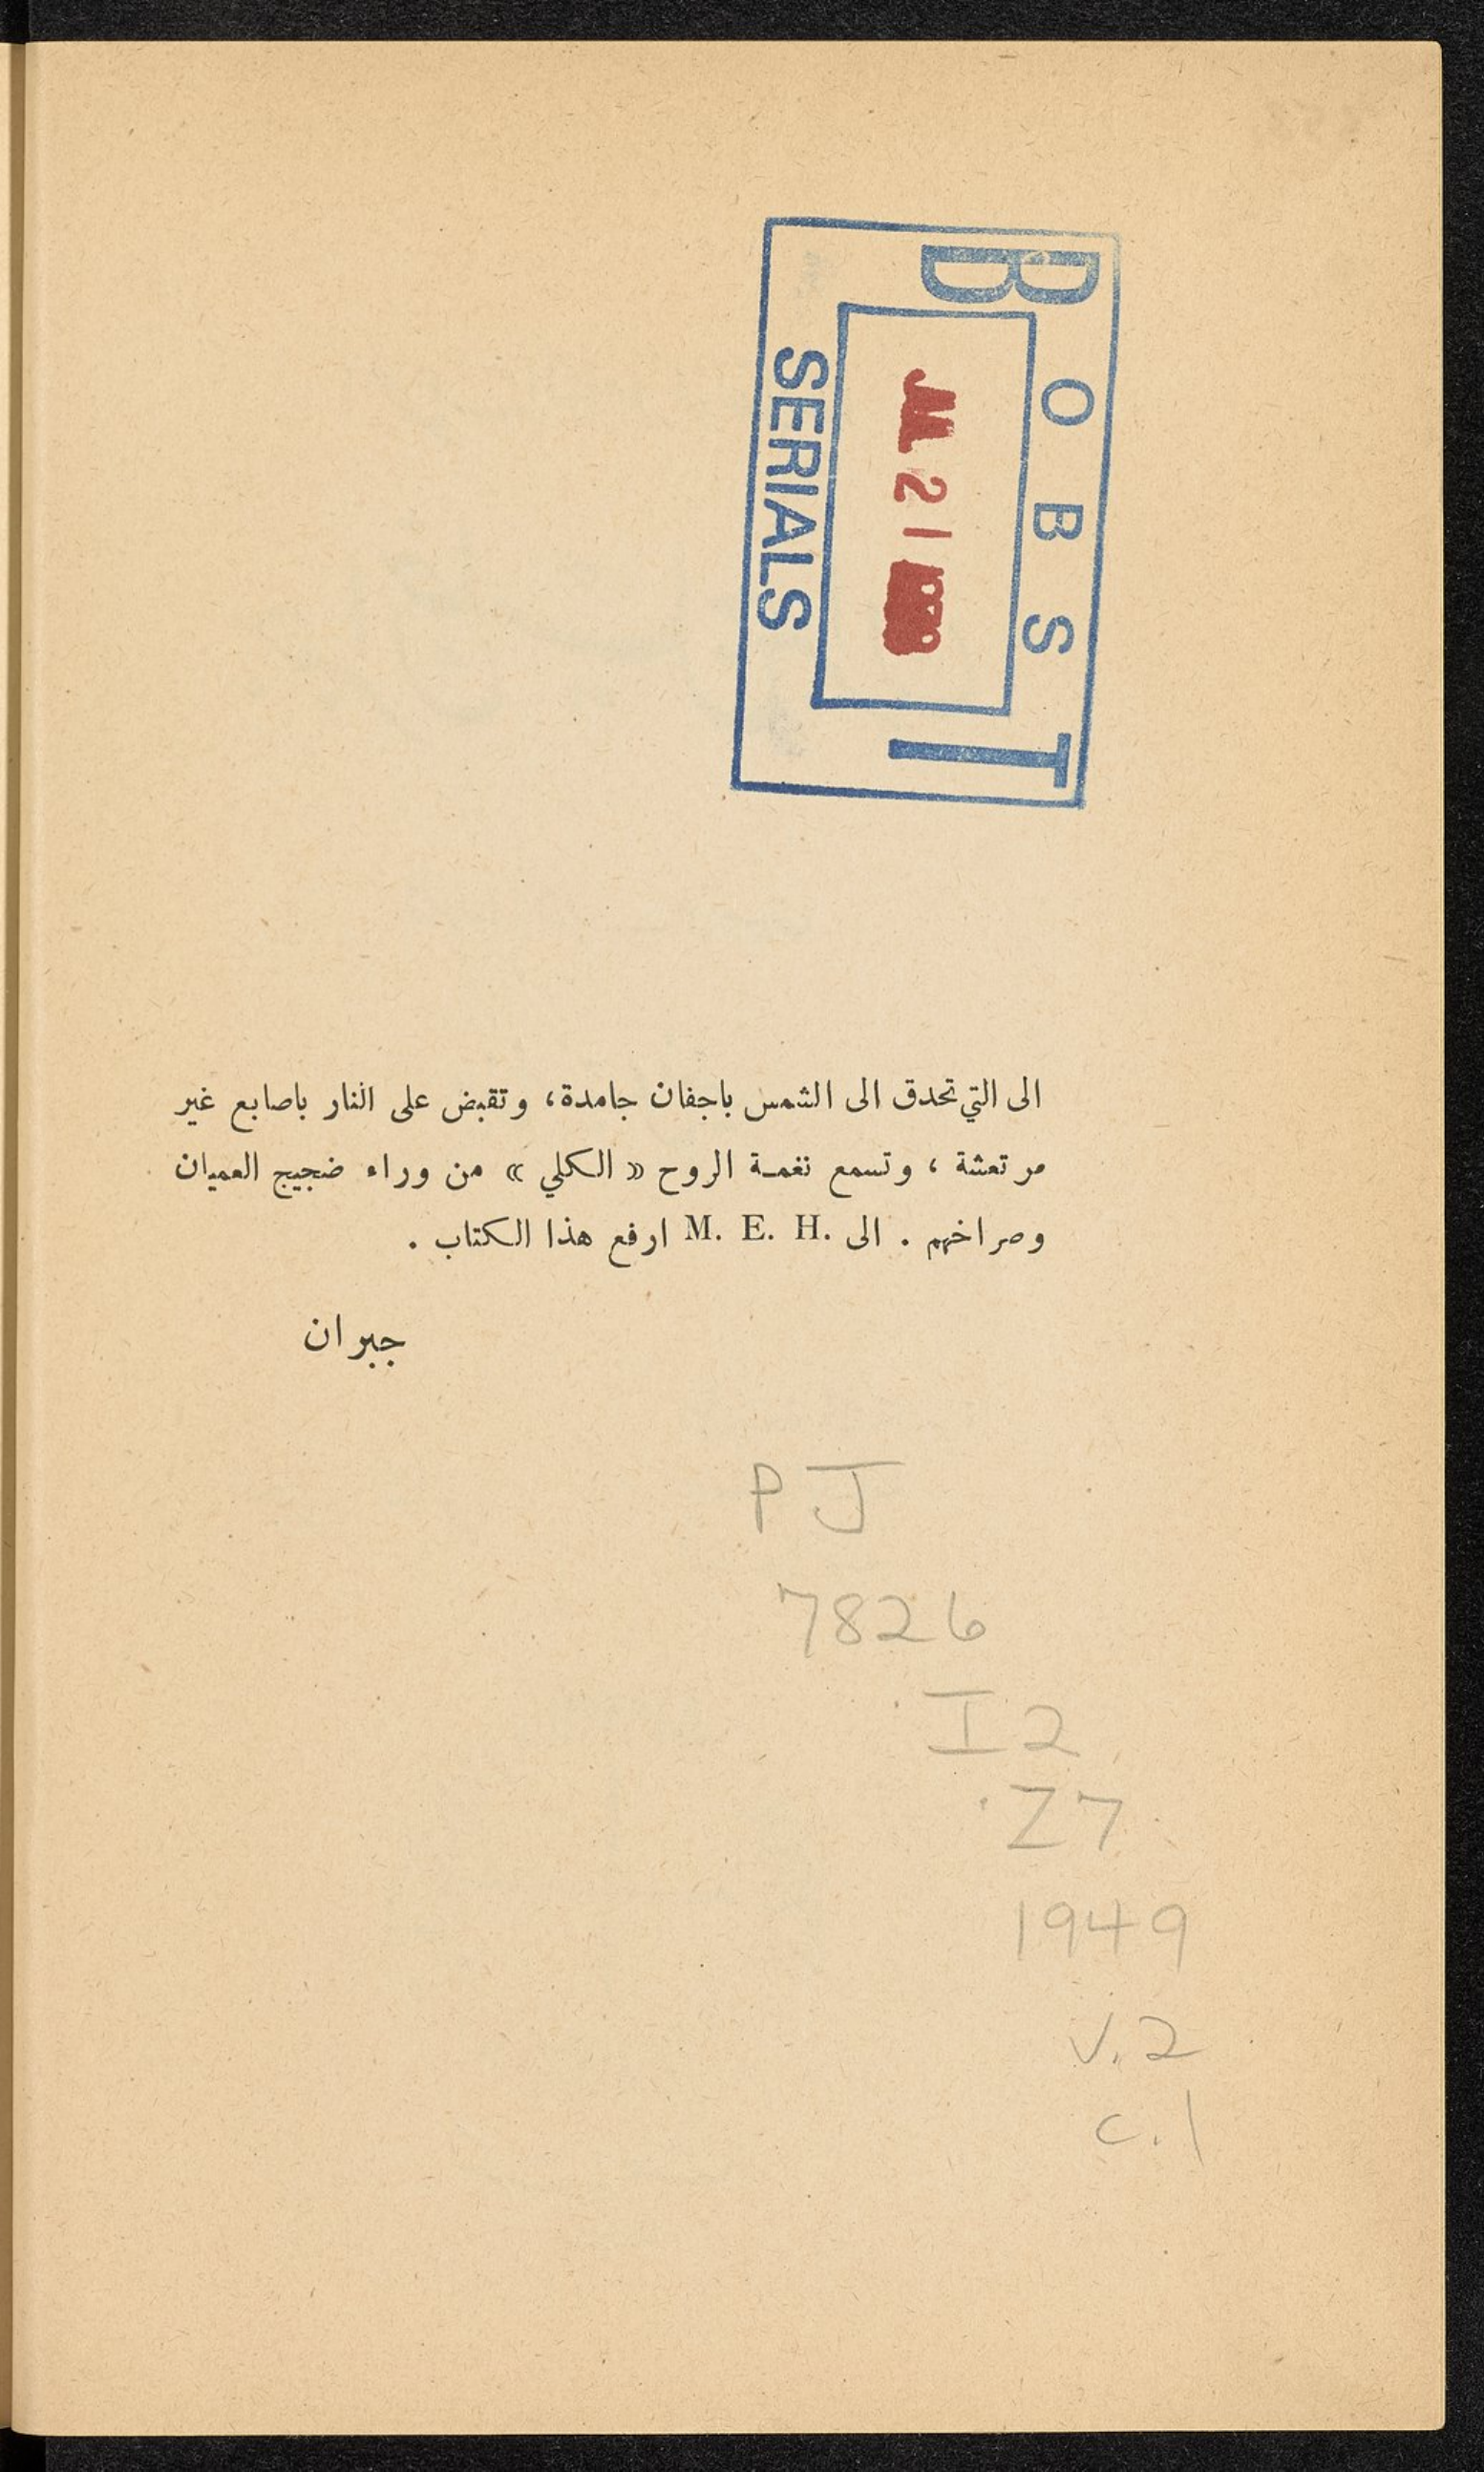 BOBST
JUL 21
SERIALS
الى التي تحدق الى الشمس باجفان جامدة، وتقبض على النار باصابع غير
مرتعشة ، وتسمع نغمـة الروح « الكلي » من وراء ضجيج العميان
وصراخهم . الى M. E. H. ارفع هذا الكتاب .
جبران
PJ
7826
I2
Z7
1949
v.2
c.1